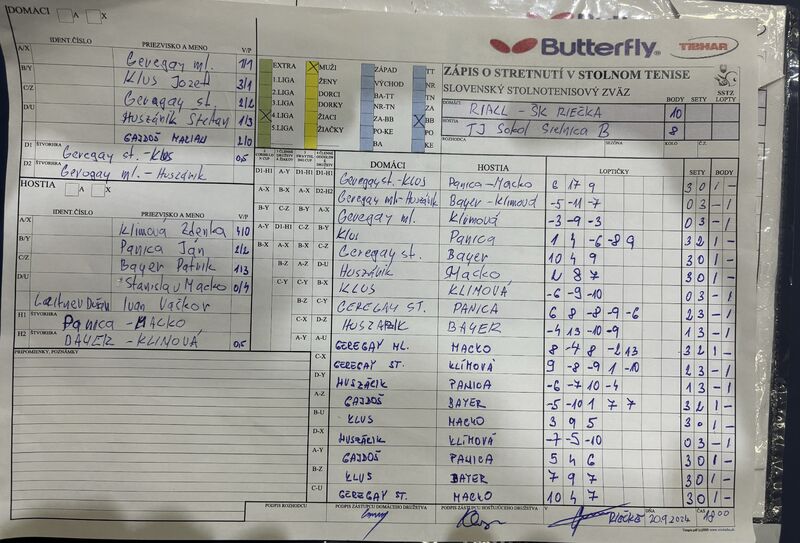 DOMÁCI A X
IDENT.ČÍSLO PRIEZVISKO A MENO V/P
A/X Geregay ml. 1/1
B/Y Klus Jozef 3/1
C/Z Geregay st. 2/2
D/U Huszárik Štefan 1/3
GAJDOŠ MARIAN 2/0
D1 ŠTVORHRA Geregay st.-Klus 0,5
D2 ŠTVORHRA Geregay ml.-Huszárik
HOSTIA A X
IDENT.ČÍSLO PRIEZVISKO A MENO V/P
A/X Klimova Zdenka 4/0
B/Y Panica Ján 2/2
C/Z Bayer Patrik 1/3
D/U Stanislav Macko 0/4
Ivan Vačkov
H1 ŠTVORHRA PANICA - MACKO
H2 ŠTVORHRA BAYER - KLIMOVÁ 0,5
PRIPOMIENKY, POZNÁMKY
EXTRA X MUŽI ZÁPAD TT
1.LIGA ŽENY VÝCHOD NR
2.LIGA DORCI BA-TT ZA
3.LIGA DORKY NR-TN
X 4.LIGA ŽIACI ZA-BB X BB
5.LIGA ŽIAČKY PO-KE PO
BA KE
Butterfly TIBHAR
ZÁPIS O STRETNUTÍ V STOLNOM TENISE
SLOVENSKÝ STOLNOTENISOVÝ ZVÄZ SSTZ
BODY SETY LOPTY
DOMÁCI RIALL - ŠK RIEČKA 10
HOSTIA TJ Sokol Sielnica B 8
ROZHODCA SEZÓNA KOLO Č.Z.
DOMÁCI HOSTIA LOPTIČKY SETY BODY
D1-H1 A-Y D1-H1 D1-H1 Geregay st.-KLUS Panica-Macko 6 17 9 3 0 1 -
A-X B-X A-X D2-H2 Geregay ml-Huszárik Bayer-Klimová -5 -11 -7 0 3 - 1
B-Y C-Z B-Y A-X Geregay ml. Klimová -3 -9 -3 0 3 - 1
A-Y D1-H1 C-Z B-Y Klus Panica 1 4 -6 -8 9 3 2 1 -
B-X A-X D1-H1 C-Z Geregay st. Bayer 10 4 9 3 0 1 -
B-Z A-Z D-U Huszárik Macko 2 8 7 3 0 1 -
C-Y C-Y B-X KLUS KLIMOVÁ -6 -9 -10 0 3 - 1
B-Z C-Y GEREGAY ST. PANICA 6 8 -8 -9 -6 2 3 - 1
C-X D-Z HUSZÁRIK BAYER -4 13 -10 -9 1 3 - 1
A-Y A-U GEREGAY ML. MACKO 8 -4 8 -2 13 3 2 1 -
C-X GEREGAY ST. KLÍMOVÁ 9 -8 -9 1 -10 2 3 - 1
D-Y HUSZÁRIK PANICA -6 -7 10 -4 1 3 - 1
A-Z GAJDOŠ BAYER -5 -10 1 7 7 3 2 1 -
B-U KLUS MACKO 3 9 5 3 0 1 -
D-X HUSZÁRIK KLÍMOVÁ -7 -5 -10 0 3 - 1
A-Y GAJDOŠ PANICA 5 4 6 3 0 1 -
B-Z KLUS BAYER 7 9 7 3 0 1 -
C-U GEREGAY ST. MACKO 10 4 7 3 0 1 -
PODPIS ROZHODCU PODPIS ZÁSTUPCU DOMÁCEHO DRUŽSTVA PODPIS ZÁSTUPCU HOSŤUJÚCEHO DRUŽSTVA V RIEČKE DŇA 20.9.2024 ČAS